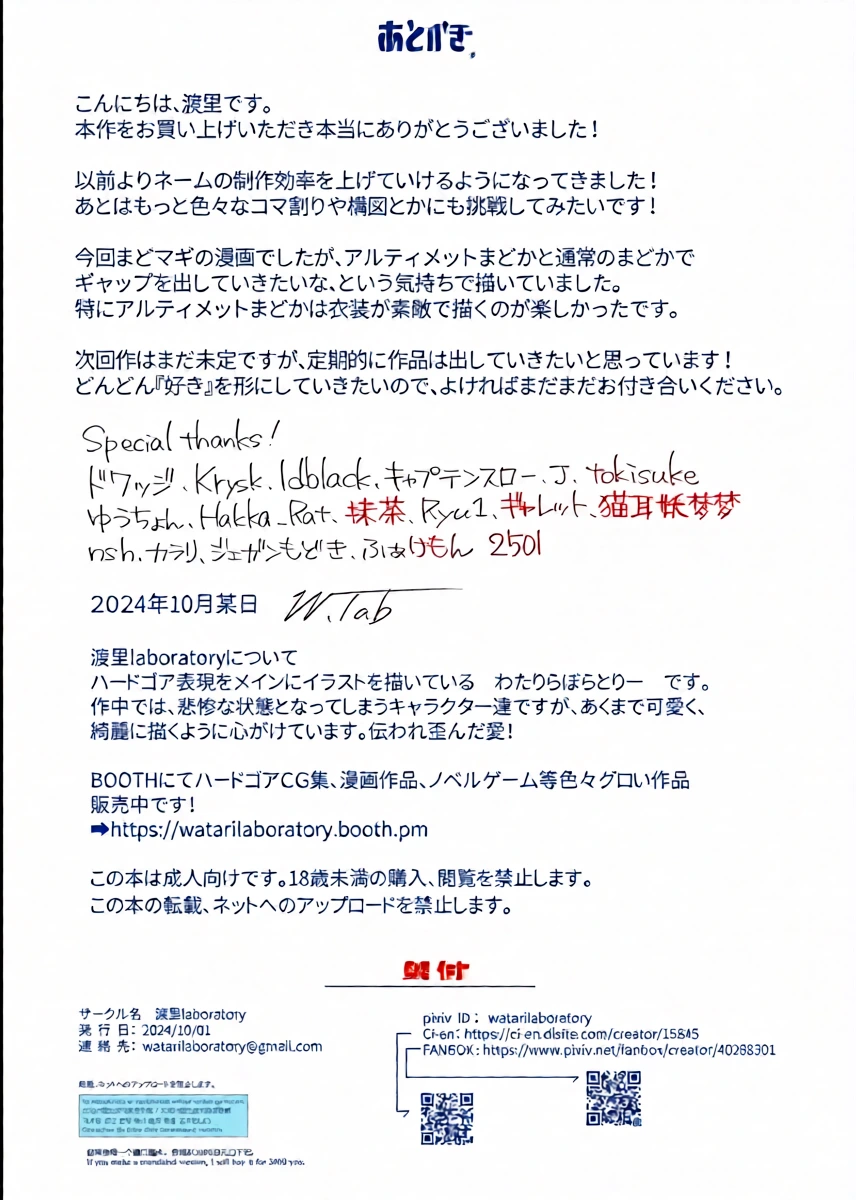 あとがき
こんにちは、渡里です。
本作をお買い上げいただき本当にありがとうございました！
以前よりネームの制作効率を上げていけるようになってきました！
あとはもっと色々なコマ割りや構図とかにも挑戦してみたいです！
今回まどマギの漫画でしたが、アルティメットまどかと通常のまどかで
ギャップを出していきたいな、という気持ちで描いていました。
特にアルティメットまどかは衣装が素敵で描くのが楽しかったです。
次回作はまだ未定ですが、定期的に作品は出していきたいと思っています！
どんどん『好き』を形にしていきたいので、よければまだまだお付き合いください。
Special thanks!
ドワッジ、Krysk、Idblack、キャプテンスロー、J、tokisuke
ゆうちょん、Hakka_Rat、抹茶、Ryu1、ギャレット、猫耳妖梦梦
nsh、カラリ、ジェガンもどき、ふぁけもん 2501
2024年10月某日 W.Tab
渡里laboratoryについて
ハードゴア表現をメインにイラストを描いている　わたりらぼらとりー　です。
作中では、悲惨な状態となってしまうキャラクター達ですが、あくまで可愛く、
綺麗に描くように心がけています。伝われ歪んだ愛！
BOOTHにてハードゴアCG集、漫画作品、ノベルゲーム等色々グロい作品
販売中です！
➡https://watarilaboratory.booth.pm
この本は成人向けです。18歳未満の購入、閲覧を禁止します。
この本の転載、ネットへのアップロードを禁止します。
奥付
サークル名　渡里laboratory
発行日：2024/10/01
連絡先：watarilaboratory@gmail.com
pixiv ID： watarilaboratory
Ci-en：https://ci-en.dlsite.com/creator/15845
FANBOX：https://www.pixiv.net/fanbox/creator/40268301